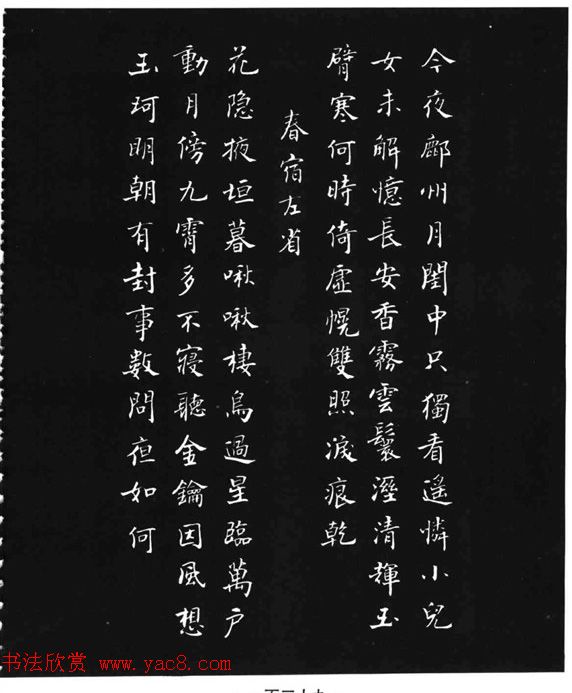 今夜鄜州月閨中只獨看遙憐小兒
女未解憶長安香霧雲鬟溼清輝玉
臂寒何時倚虛幌雙照淚痕乾
春宿左省
花隐掖垣暮啾啾棲鳥過星臨萬戶
動月傍九霄多不寢聽金鑰因風想
玉珂明朝有封事数問夜如何
书法欣赏 www.yac8.com